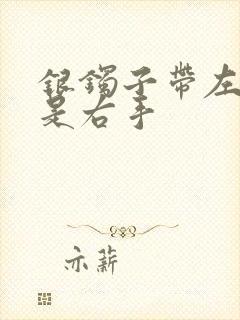 銀鐲子帶左
是右手
亦薪